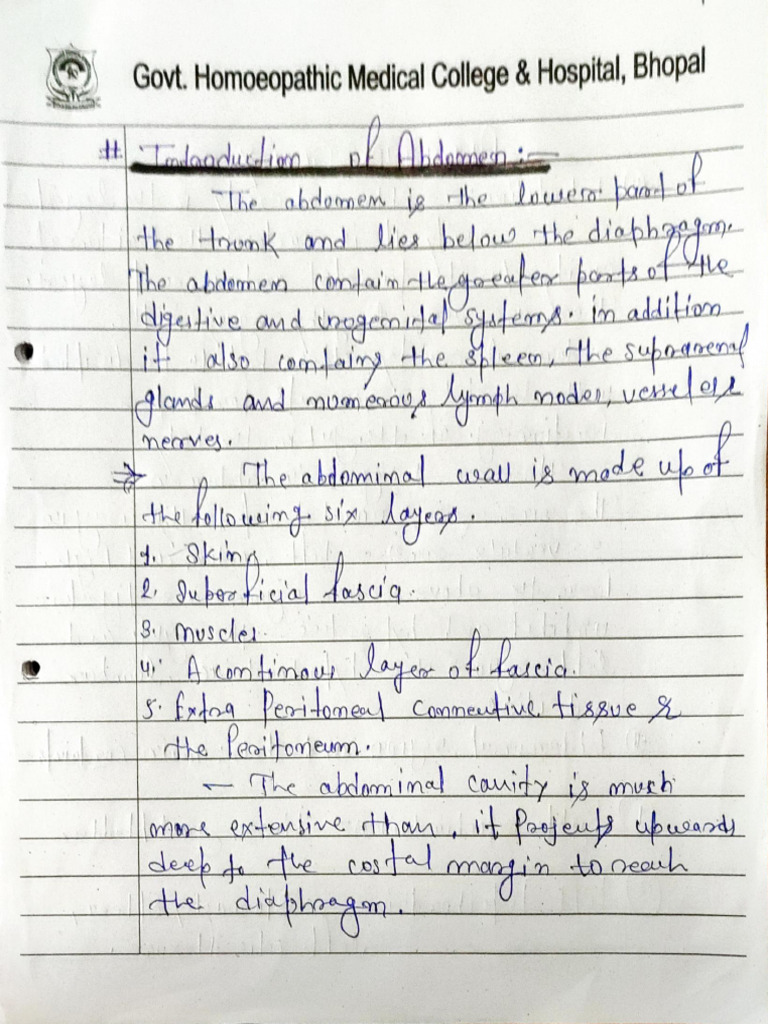 Govt. Homoeopathic Medical College & Hospital, Bhopal
# Indaoduction of Abdomen :-
The abdomen is the lower part of
the trunk and lies below the diaphragm.
The abdomen contain the greater parts of the
digestive and urogenital systems. in addition
it also contains the spleen, the suprarenal
glands and numerous lymph nodes, vessels &
nerves.
⇒ The abdominal wall is made up of
the following six layers.
1. Skin
2. Superficial fascia.
3. muscles.
4. A continous layer of fascia.
5. Extra Peritoneal conneutive tissue &
the Peritoneum.
- The abdominal cavity is much
more extensive than, it Projects upwards
deep to the costal margin to reach
the diaphragm.